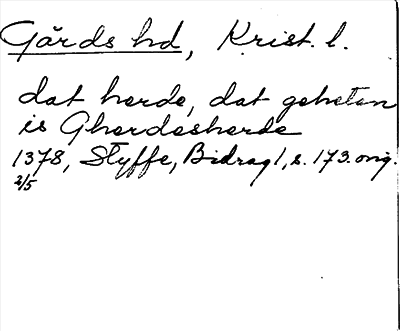 Gärds hd, Krist. l.
dat herde, dat geheten
is Gherdesherde
1378, Styffe, Bidrag 1, s. 173. orig.
2/5